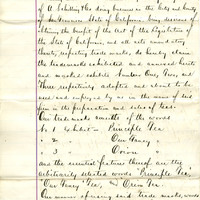 of A. Schilling & Co. doing business in the City and County
of San Francisco State of California, being desirous of
obtaining the benefit of the Act of the Legislature of
the State of California, and all acts amendatory
thereof, respecting trade marks, do hereby claim
the trademarks exhibited and annexed hereto
and marked exhibits Numbers One, Two, and
Three respectively adopted and about to be
used and employed by us in the name of said
firm in the preparation and sales of teas.
Our trade marks consists of the words
No 1 Exhibit - Princeps Tea
" 2 " Our Fancy "
" 3 " Orion "
and the essential feature thereof are the
arbitrarily selected words
Our Fancy Tea, Orion Tea.
Our manner of using said trade marks,